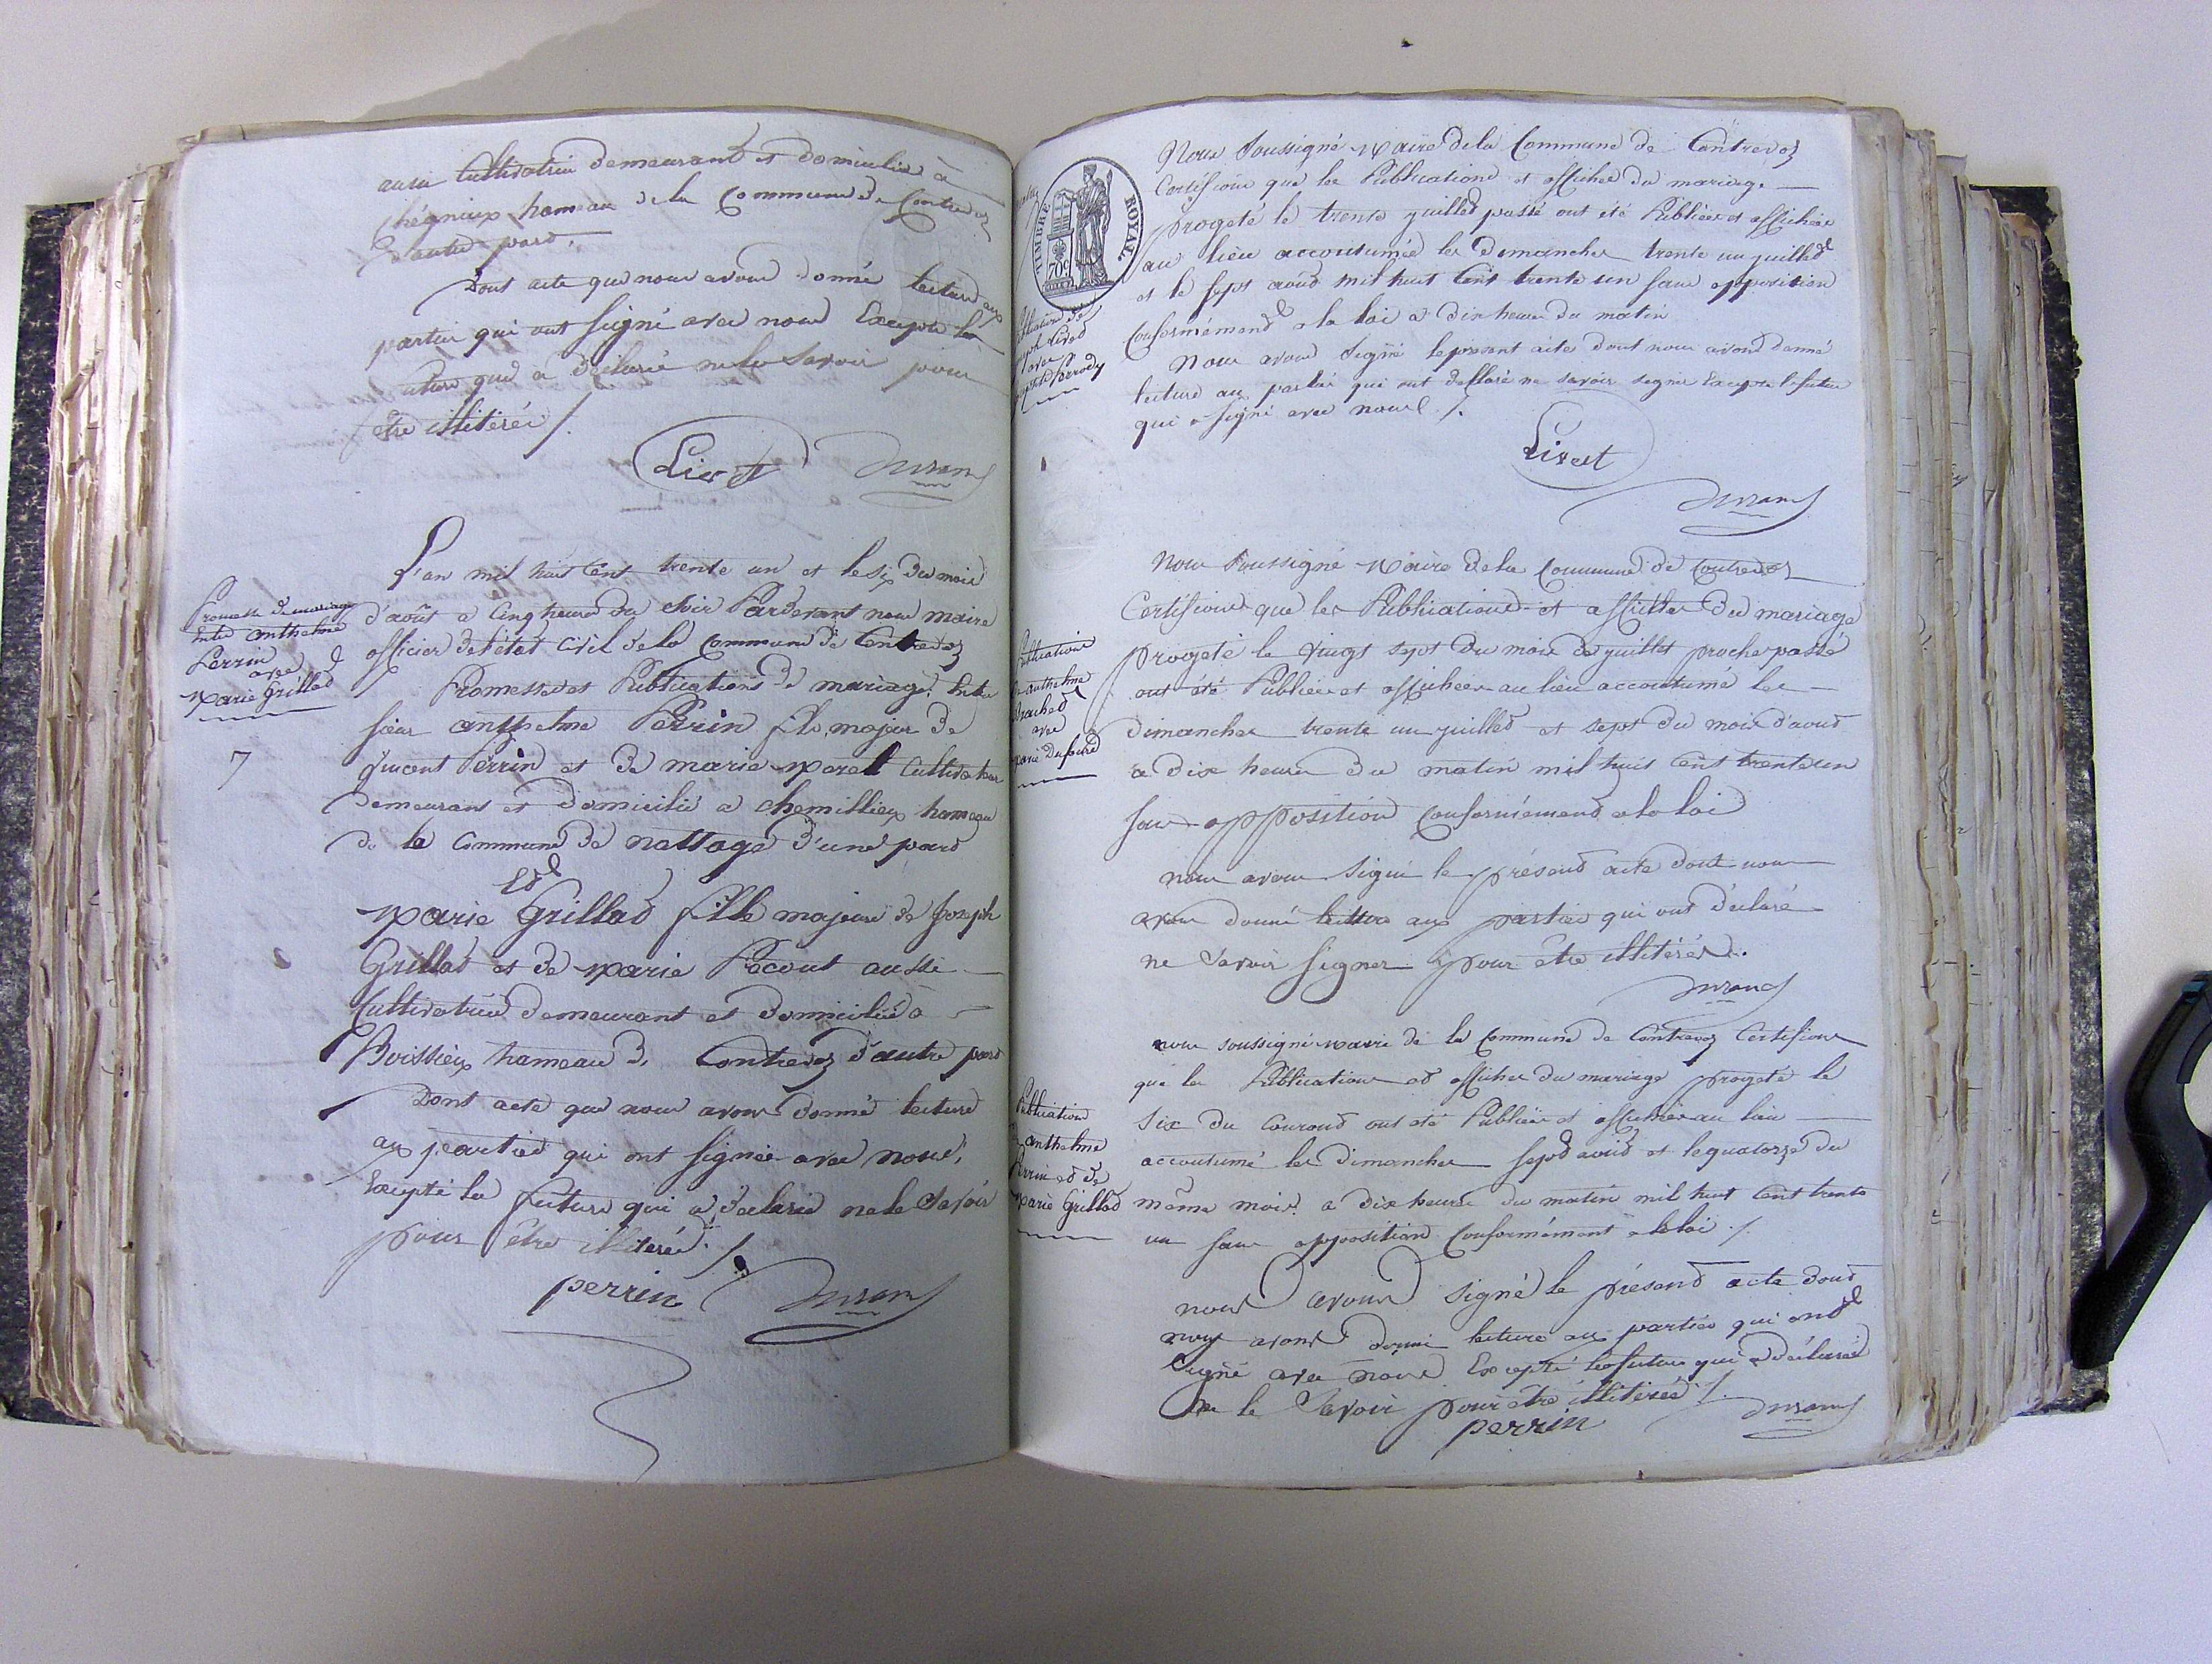 aussi Cultivatrice demeurant et domiciliée à
Chégnieux hameau de la Commune de Contrevoz
d'autre part.
Dont acte que nous avons donné lecture aux
parties qui ont signé avec nous Excepté la
future qui a déclaré ne le Savoir pour
être illitérée /.
Livet Durand
L'an mil huit Cent trente un et le six du mois
Promesse de mariage
Entre anthelme
Perrin
avec
Marie Grillad
7
d'août a Cinq heures du Soir Pardevant nous maire
officier de l'état Civil de la Commune de Contrevoz
Promesses et Publications de mariage, Entre
sieur anthelme Perrin fils majeur de
Vincent Perrin et de marie Morel Cultivateur
demeurant et domicilié a chemillieu hameau
de la Commune de nattage d'une part
Et
Marie Grillad fille majeure de Joseph
Grillad et de Marie Pecout aussi
Cultivatrice demeurant et domiciliée à
Boissieu hameau de Contrevoz d'autre part
Dont acte que nous avons donné lecture
aux parties qui ont signée avec nous,
Excepté la future qui a déclaré ne le Savoir
pour être illiterée. /.
perrin Durand
TIMBRE ROYAL
70c
Nous Soussigné Maire de la Commune de Contrevoz
Certifions que les Publications et affiches du mariage
progeté le trente juillet passé ont été Publiées et affichées
au lieu accoutumée les Dimanches trente un juillet
et le sept août mil huit Cent trente un sans opposition
Conformément a la loi a dix heures du matin
Nous avons Signé le present acte dont nous avons donné
lecture aux parties qui ont declaré ne savoir signer Excepté le futur
qui a signé avec nous /.
Livet
Durand
Nous Soussigné Maire de la Commune de Contrevoz
Certifions que les Publications et affiches du mariage
progeté le vingt sept du mois de juillet proche passé
ont été Publiées et affichées au lieu accoutumé les
dimanches trente un juillet et sept du mois d'août
a dix heures du matin mil huit Cent trente un
sans opposition Conformément a la loi
nous avons Signé le présent acte dont nous
avons donné lecture aux parties qui ont déclaré
ne Savoir signer pour être illitérés.
Durand
Publication
anthelme
Perrin et de
Marie Grillad
nous soussigné Maire de la Commune de Contrevoz Certifions
que les Publications et affiches du mariage progeté le
six du Courant ont été Publiées et affichées au lieu
accoutumé les dimanches sept août et le quatorze du
même mois. a dix heures du matin mil huit Cent trente
un sans opposition Conformément a la loi /.
nous avons signé le présent acte dont
nous avons donné lecture aux parties qui ont
Signé avec nous Excepté la future qui a déclaré
ne le Savoir pour être illitérée /.
perrin Durand